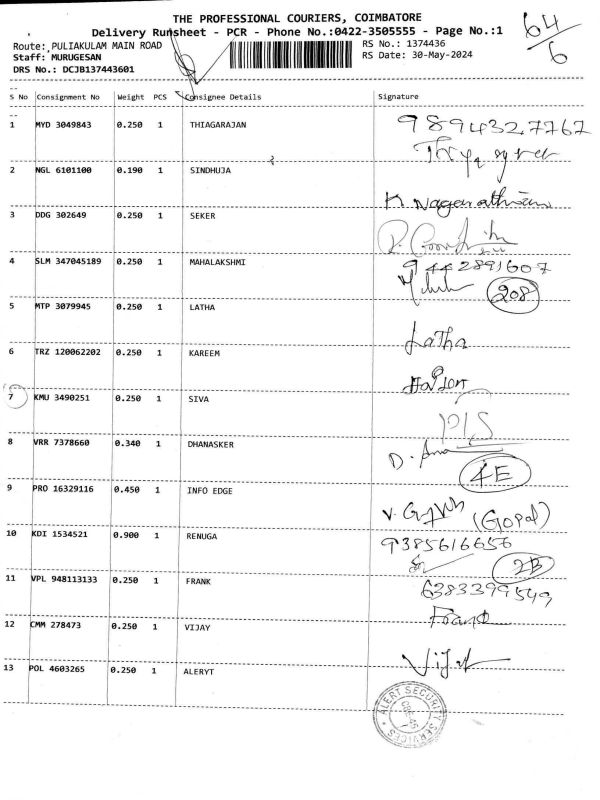 THE PROFESSIONAL COURIERS, COIMBATORE
Delivery Runsheet - PCR - Phone No.:0422-3505555 - Page No.:1
64/6
Route: PULIAKULAM MAIN ROAD
RS No.: 1374436
Staff: MURUGESAN
RS Date: 30-May-2024
DRS No.: DCJB137443601
S No Consignment No Weight PCS Consignee Details Signature
1 MYD 3049843 0.250 1 THIAGARAJAN 9894327767
2 NGL 6101100 0.190 1 SINDHUJA K Nagarathinam
3 DDG 302649 0.250 1 SEKER
4 SLM 347045189 0.250 1 MAHALAKSHMI 9442891607
208
5 MTP 3079945 0.250 1 LATHA Latha
6 TRZ 120062202 0.250 1 KAREEM
7 KMU 3490251 0.250 1 SIVA DIS
8 VRR 7378660 0.340 1 DHANASKER D.
4E
9 PRO 16329116 0.450 1 INFO EDGE V. (Gopal)
10 KDI 1534521 0.900 1 RENUGA 9385616656
2B
11 VPL 948113133 0.250 1 FRANK 6383399549
Frank
12 CMM 278473 0.250 1 VIJAY Vijay
13 POL 4603265 0.250 1 ALERYT
ALERT SECURITY SERVICES
CBE-45